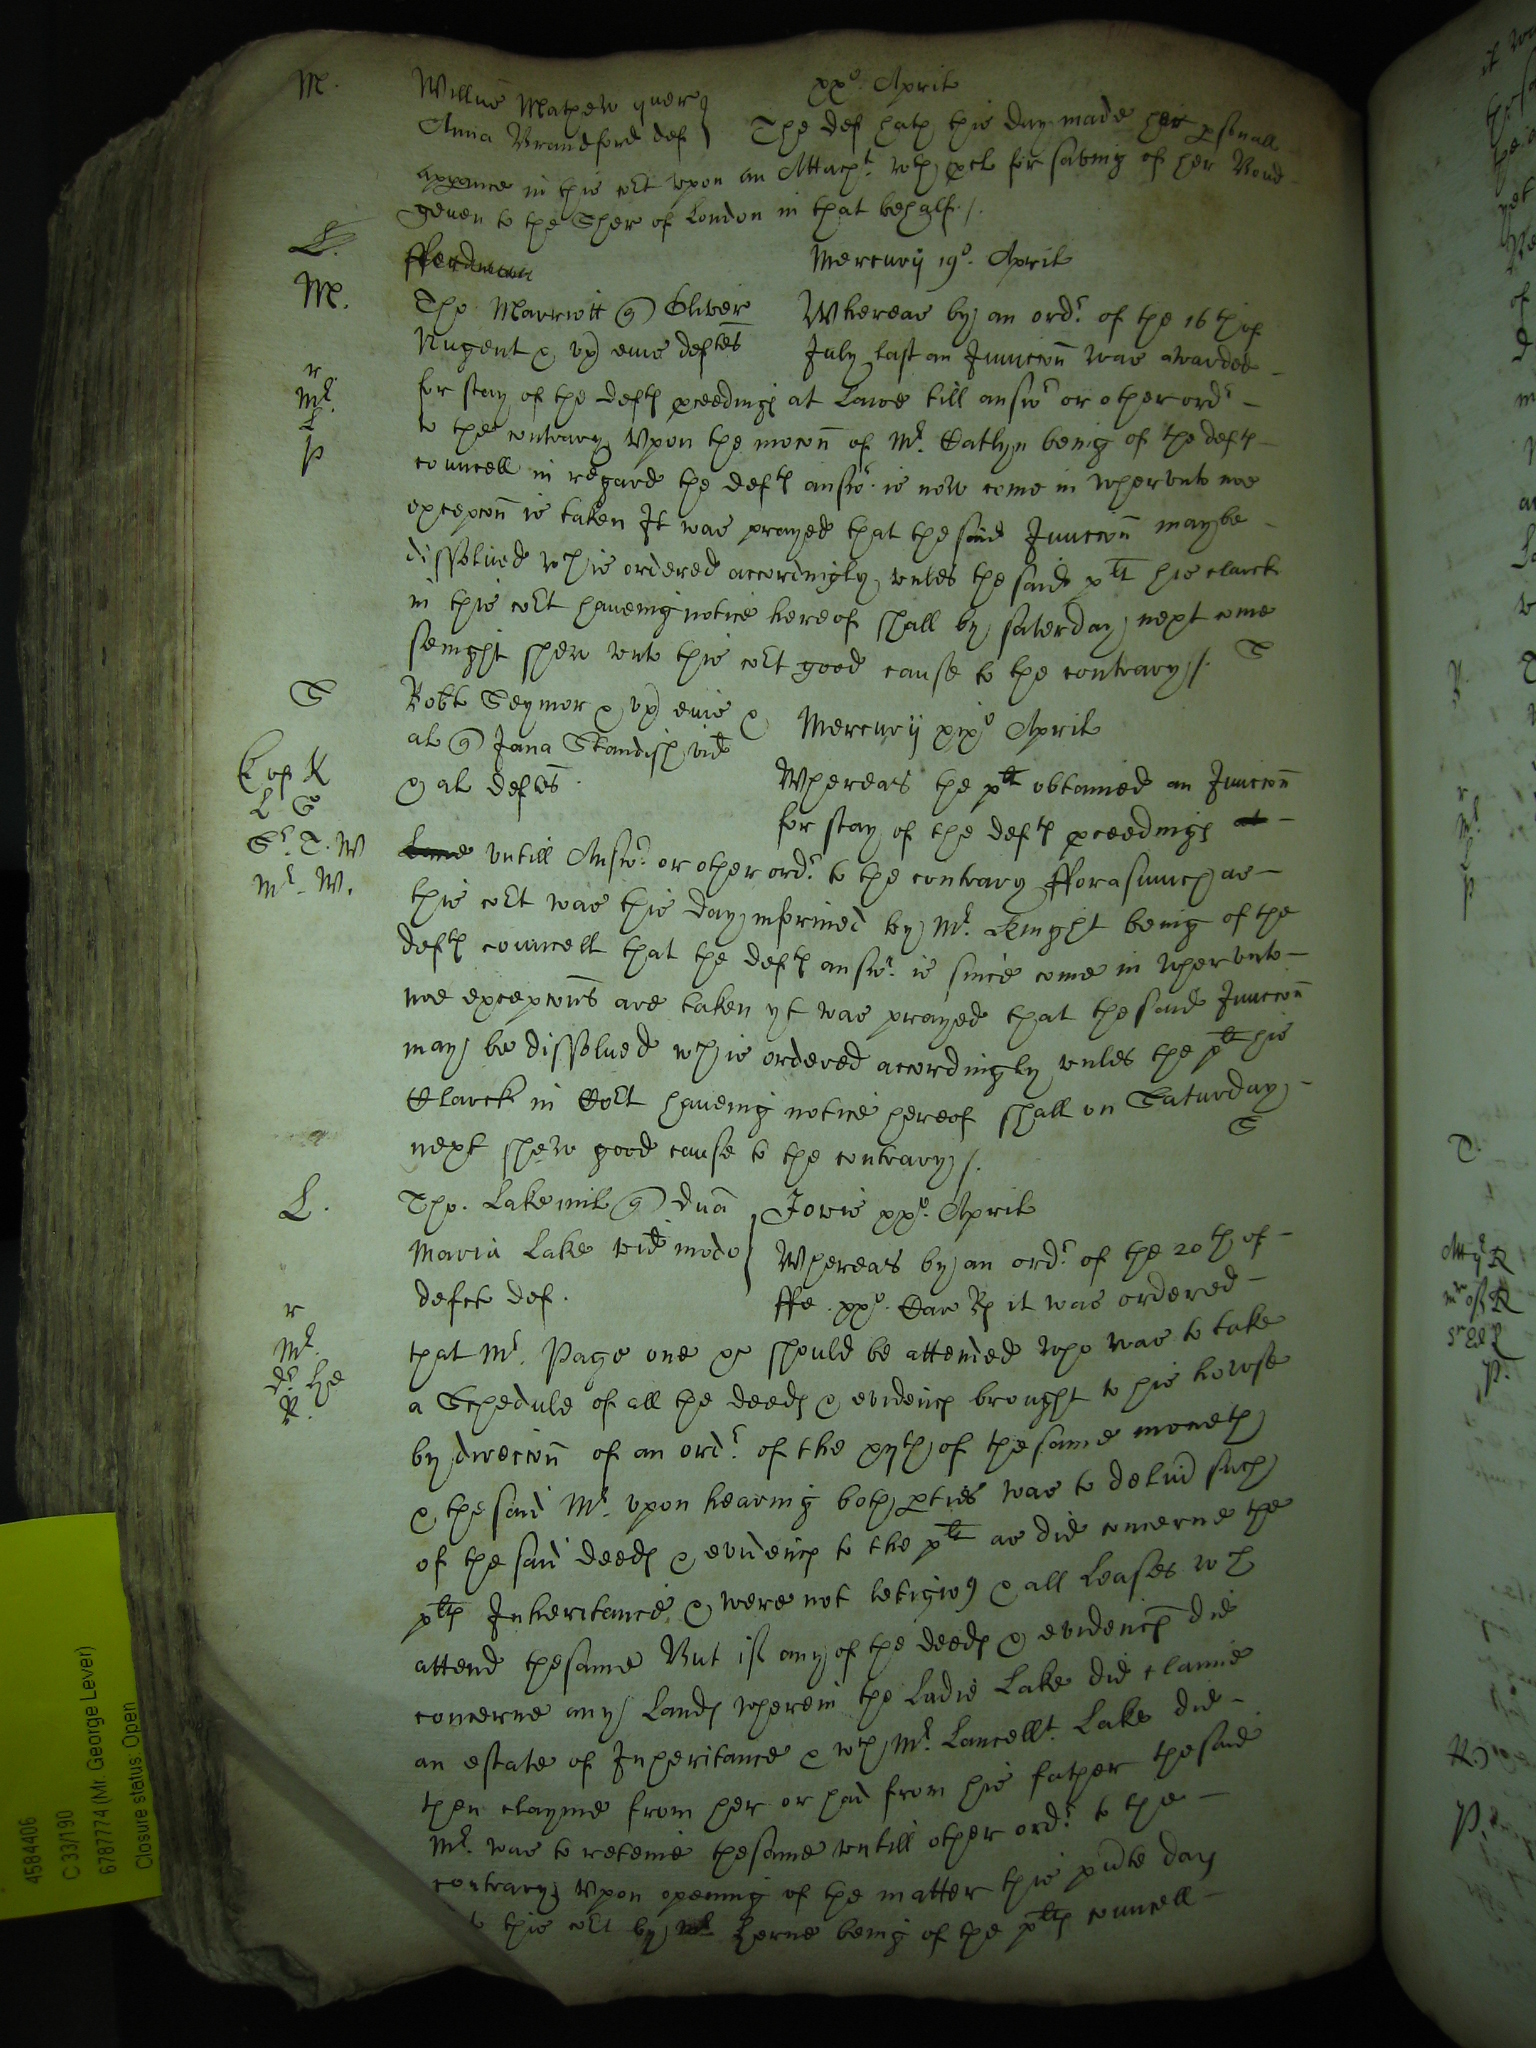 M. Willus Mathew quer xxº. Aprilis
Anna Brandford def } The def hath this day made her psonall
appance in this cort upon an Attacht. wth pcl for saving of her Bond
geven to the Sher of London in that behalf./.
L. Mercurij 19º. Aprilis
M. Tho. Marriott Oliver Whereas by an ordr. of the 16th of
Nugent & ux eius deftes July last an Iniunccon was awarded
for stay of the defts pceedings at Lawe till answr or other ordr.
Mr.
to the contrary Upon the mocon of Mr. Catlyn being of the defts
L
P
councell in regard the defts answr. is now come in wherunto noe
excepcon is taken It was prayed that the said Iniunccon may be
dissolued wch is ordered accordingly, unles the said plt his clarck
in this cort haueing notice hereof shall by saterday next come
senight shew unto this cort good cause to the contrary ./. S
S Robte Seymor & ux eius & Mercurij xixº Aprilis
al Jana Standish vid
& al deftes. Whereas the plt obtained an Iniunccon
L S for stay of the defts pceedings at
Sr. T. W Lawe untill Answr. or other ordr. to the contrary fforasmuch as
Mr. W. this cort was this day informed by Mr. Knight being of the
defts councell that the defts answr. is since come in wherunto
noe excepcons are taken yt was prayed that the said Iniunccon
may be dissolued wch is ordered accordingly unles the plt his
Clarck in Cort haueing notice hereof shall on Saturday
next shew good cause to the contrary ./. S
L. Tho. Lake mil dna Jovis xxº. Aprilis
Maria Lake vid modo Whereas by an ordr. of the 20th of
defct def. ffe. xxº. Car Rs it was ordered
Mr. that Mr. Page one &c should be attended who was to take
a Schedule of all the deeds & evidencs brought to his howse
R. by direccon of an ordr. of the xijth of the same moneth
& the said Mr. upon hearing both pties was to deliv such
of the said deeds & evidencs to the plt as did concerne the
plts Inheritance & were not letigious & all Leases wch
attend the same But if any of the deeds & evidencs did
concerne any Lands wherein the Ladie Lake did claime
an estate of Inheritance & wch Mr. Lancellt. Lake did
then clayme from her or had from his father the said
Mr. was to reteine the same untill other ordr. to the
contrary; Upon opening of the matter this pnte day
this cort by Mr Herne being of the plts councell
4584406
C 33/190
6787774 (Mr. George Lever)
Closure status: Open